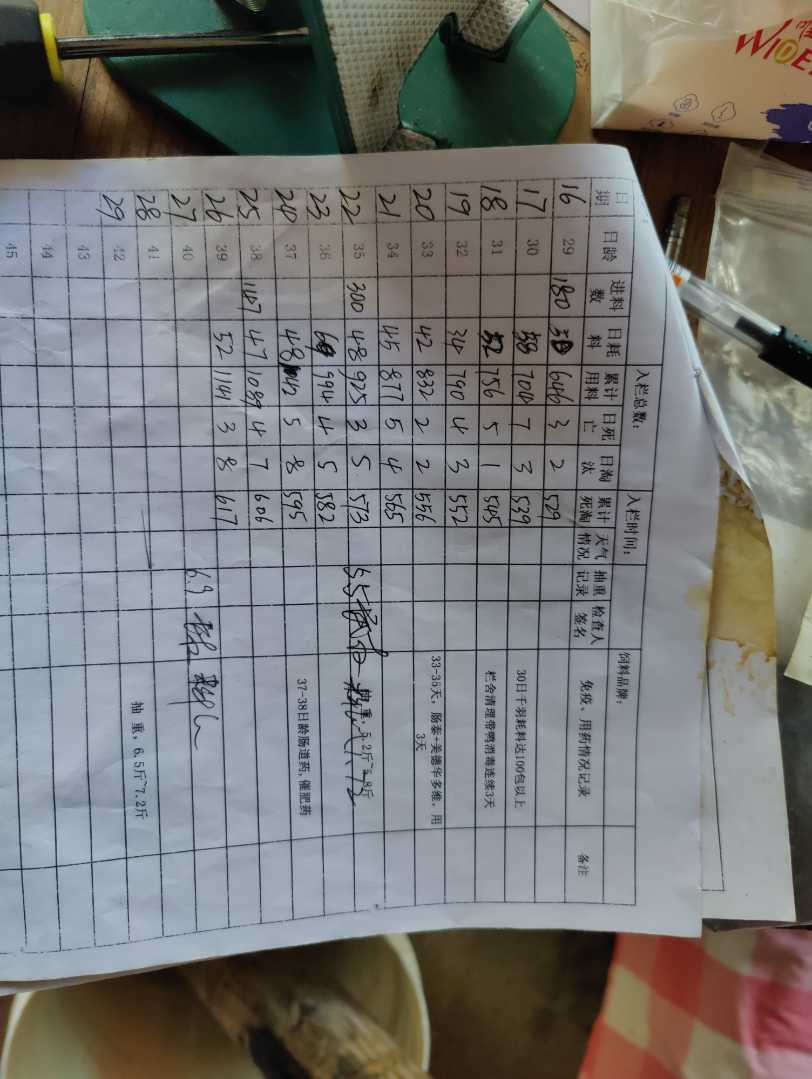 入栏总数： 入栏时间： 饲料品牌：
日期 日龄 进料数 日耗料 累计用料 日死亡 日淘汰 累计死淘 天气情况 抽重记录 检查人签名 免疫、用药情况记录 备注
16 29 180 646 3 2 529
17 30 58 704 7 3 539 30日千羽耗料达100包以上
18 31 52 756 5 1 545 栏舍清理带鸭消毒连续3天
19 32 34 790 4 3 552
20 33 42 832 2 2 556 33-35天，肠泰+美德华多维，用3天
21 34 45 877 5 4 565
22 35 300 48 925 3 5 573 5.5 抽重，5.2斤~5.8斤
23 36 994 4 5 582
24 37 48 5 8 595 37-38日龄肠道药，催肥药
25 38 1147 47 1089 4 7 606
26 39 52 1141 3 8 617
27 40 6.9
28 41 抽重，6.5斤~7.2斤
29 42
43
44
45
WIDE